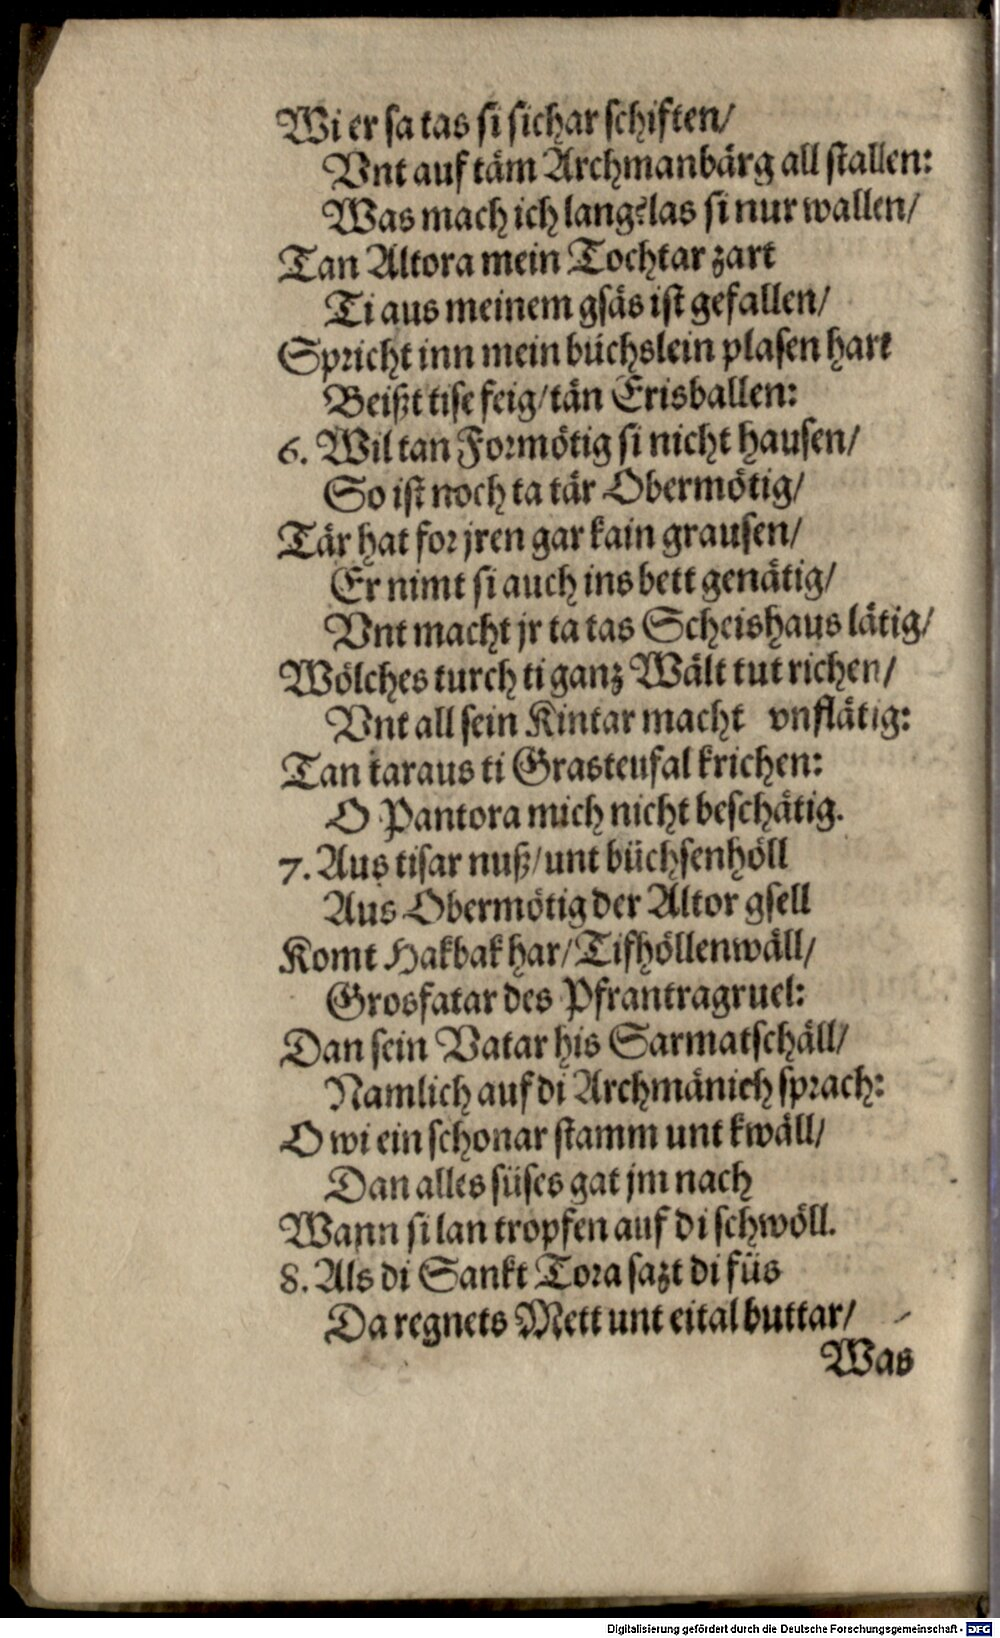 Wi er sa tas si sich ar schiften/
Vnt auf täm Archmanbärg all stallen:
Was mach ich lang? las si nur wallen/
Tan Altora mein Tochtar zart
Ti aus meinem gsäs ist gefallen/
Spricht inn mein büchslein plasen hart
Beißt tise feig/ tän Erisballen:
6. Wil tan Formötig si nicht hausen/
So ist noch ta tär Obermötig/
Tär hat for jren gar kain grausen/
Er nimt si auch ins bett genätig/
Vnt macht jr ta tas Scheishaus lätig/
Wölches turch ti ganz Wält tut richen/
Vnt all sein Kintar macht vnflätig:
Tan taraus ti Grasteufal krichen:
O Pantora mich nicht beschätig.
7. Aus tisar nuß/ unt büchsenhöll
Aus Obermötig der Altor gsell
Komt Hakbak har/ Tifhöllenwäll/
Grosfatar des Pfrantragruel:
Dan sein Vatar his Sarmatschäll/
Namlich auf di Archmänich sprach:
O wi ein schonar stamm unt kwäll/
Dan alles süses gat jm nach
Wann si lan tropfen auf di schwöll.
8. Als di Sankt Tora sazt di füs
Da regnets Mett unt eital buttar/
Was
Digitalisierung gefördert durch die Deutsche Forschungsgemeinschaft - DFG